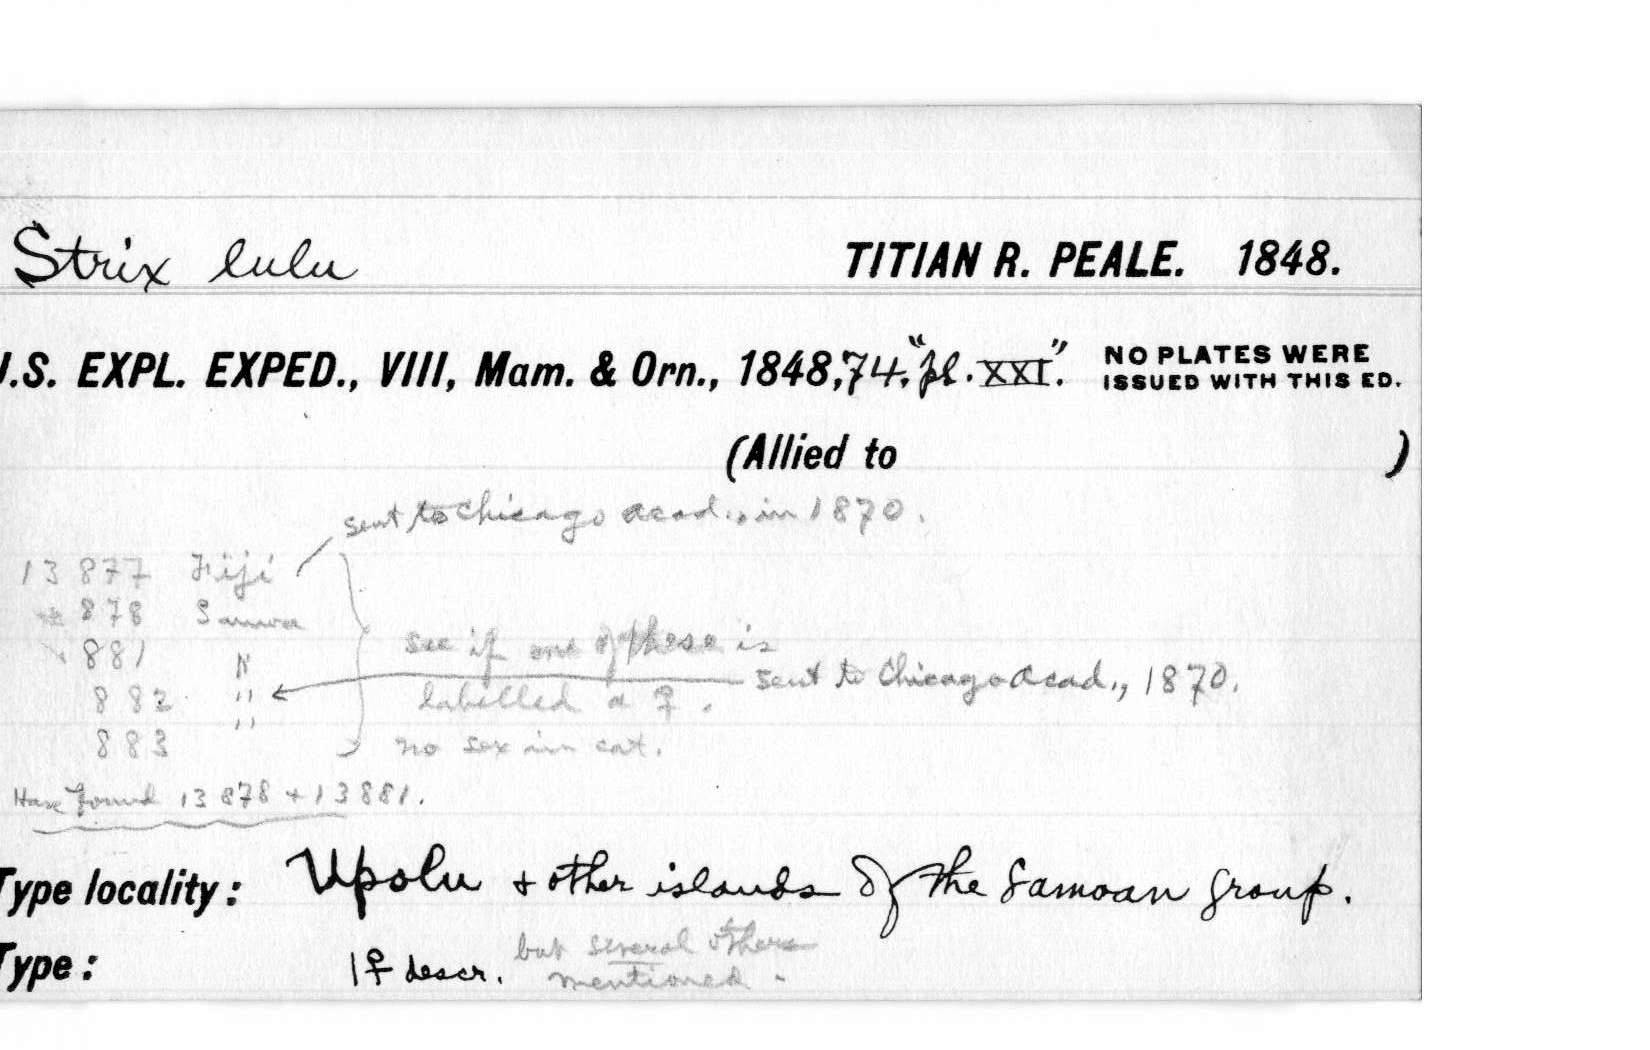 Strix lulu TITIAN R. PEALE. 1848.
U.S. EXPL. EXPED., VIII, Mam. & Orn., 1848, 74. "pl. XXI." NO PLATES WERE
ISSUED WITH THIS ED.
(Allied to )
sent to Chicago Acad., in 1870.
13 877 Fiji
878 Samoa
881 "
see if one of these is
882 " sent to Chicago Acad., 1870.
labelled a ♀.
883 " no sex in cat.
Have found 13 878 + 13 881.
Type locality: Upolu & other islands of the Samoan group.
Type: 1 ♀ descr. but several others
mentioned.